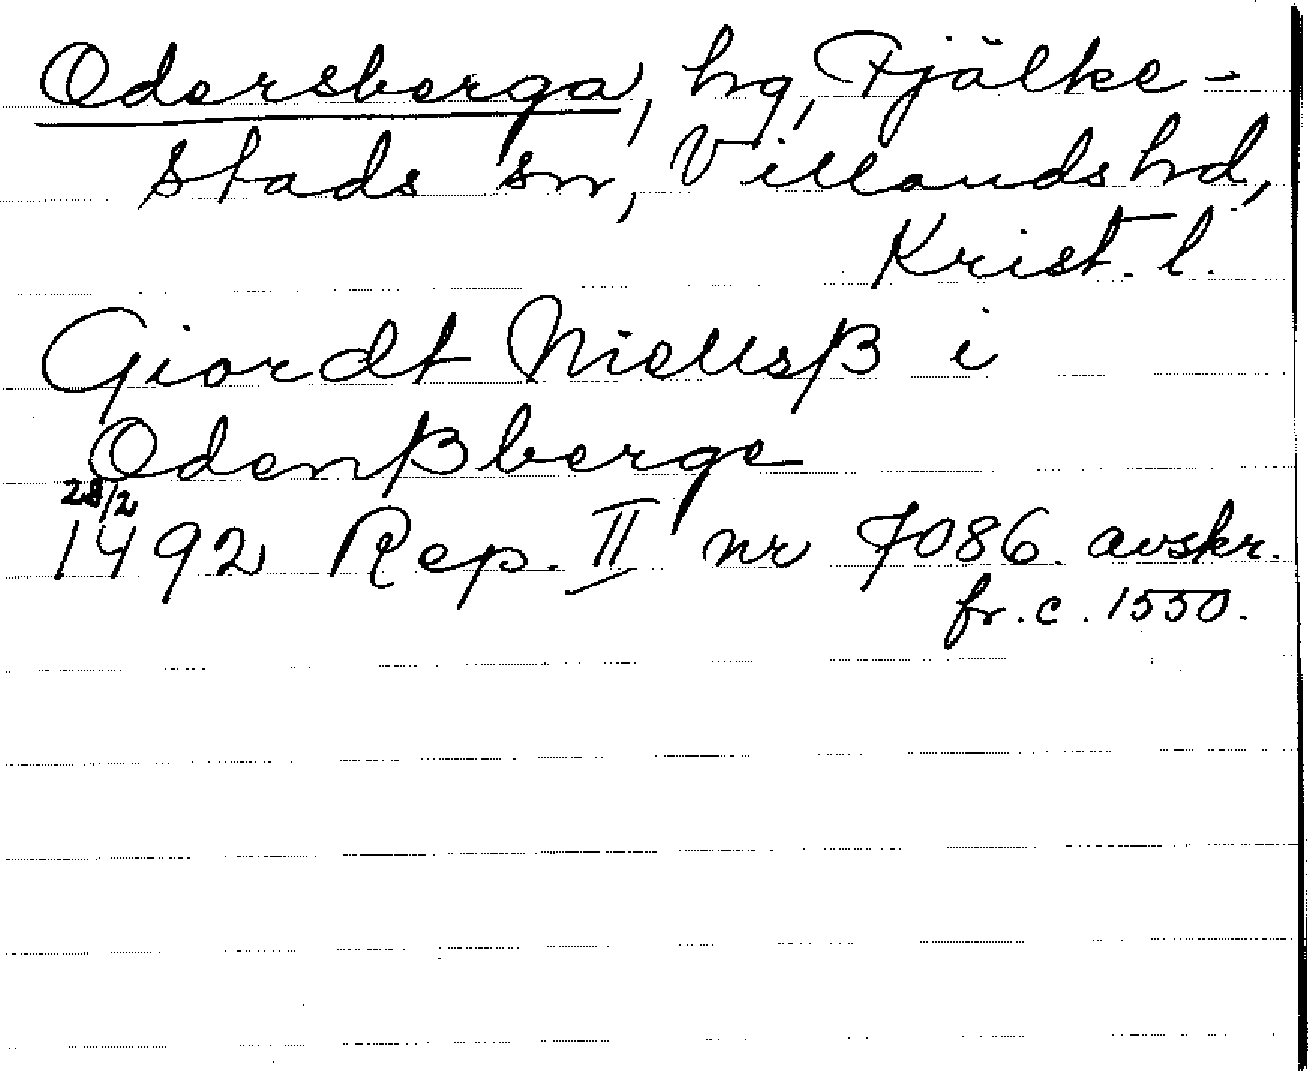 Odersberga, hg, Fjälke-
stads sn, Villands hd,
Krist. l.
Giordt Niellsß i
Odenßberge
28/2
1492 Rep. II nr 7086. avskr.
fr. c. 1550.